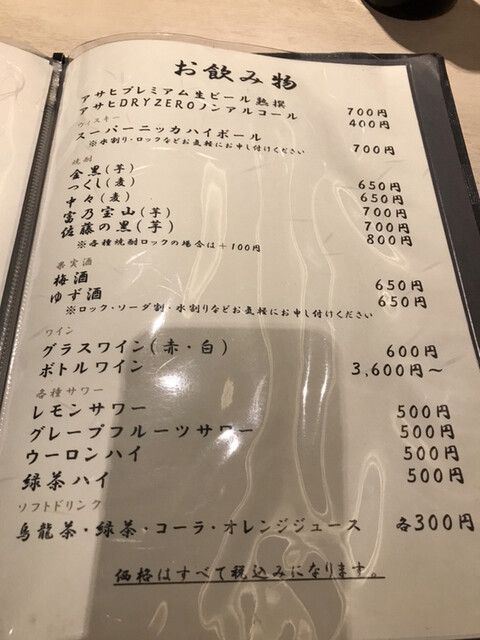 お飲み物
アサヒプレミアム生ビール 熟撰 700円
アサヒDRYZEROノンアルコール 400円
ウィスキー
スーパーニッカハイボール 700円
※水割り・ロックなどお気軽にお申し付けください
焼酎
金黒(芋) 650円
つくし(麦) 650円
中々(麦) 700円
富乃宝山(芋) 700円
佐藤の黒(芋) 800円
※各種焼酎ロックの場合は+100円
果実酒
梅酒 650円
ゆず酒 650円
※ロック・ソーダ割・水割りなどお気軽にお申し付けください
ワイン
グラスワイン(赤・白) 600円
ボトルワイン 3,600円～
各種サワー
レモンサワー 500円
グレープフルーツサワー 500円
ウーロンハイ 500円
緑茶ハイ 500円
ソフトドリンク
烏龍茶・緑茶・コーラ・オレンジジュース 各300円
価格はすべて税込みになります。